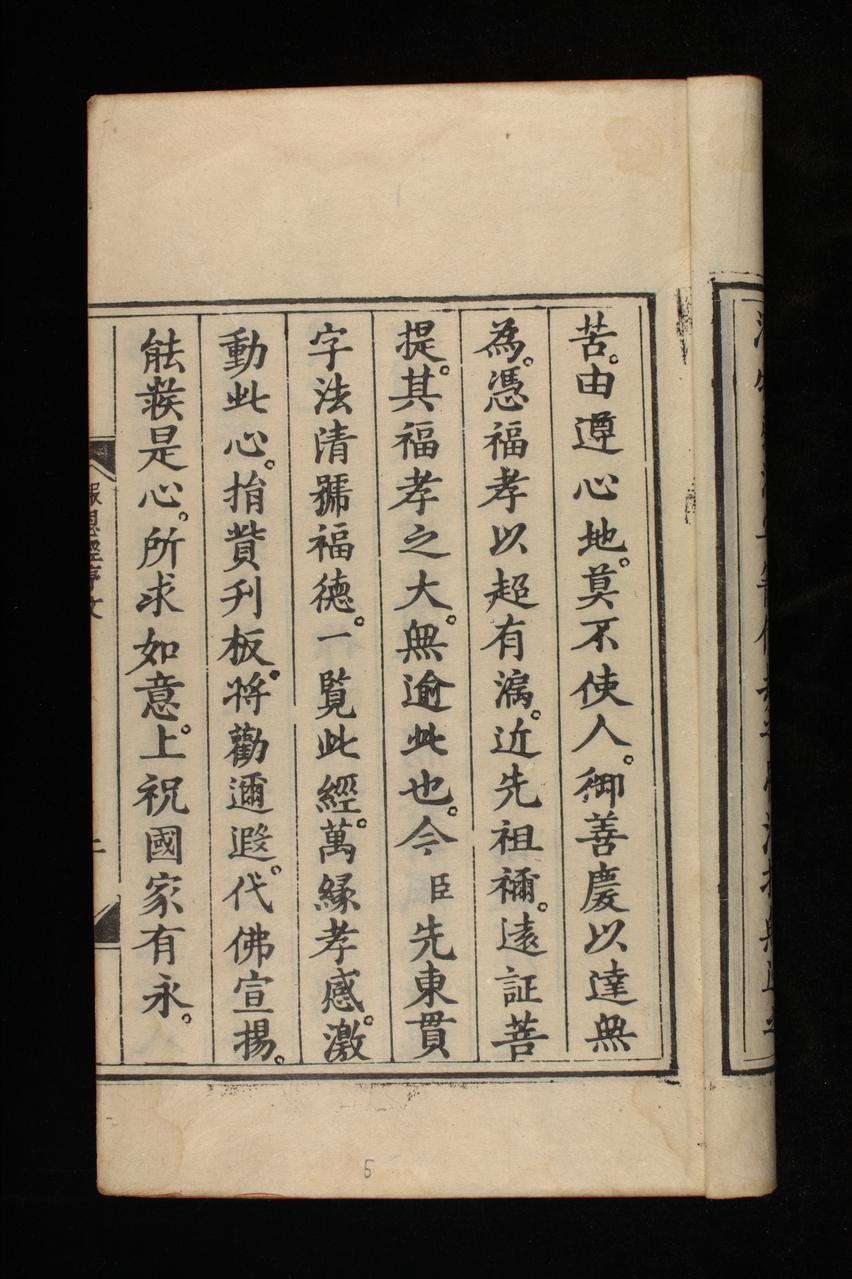 苦。由遵心地。莫不使人。御善慶以達無
為。憑福孝以超有漏。近先祖禰。遠証菩
提。其福孝之大。無逾此也。今臣先東貫
字法清號福德。一覧此經。萬縁孝感。激
動此心。捐貲刋板。将勸邇遐。代佛宣揚。
能發是心。所求如意。上祝國家有永。
報恩經序文
二
5